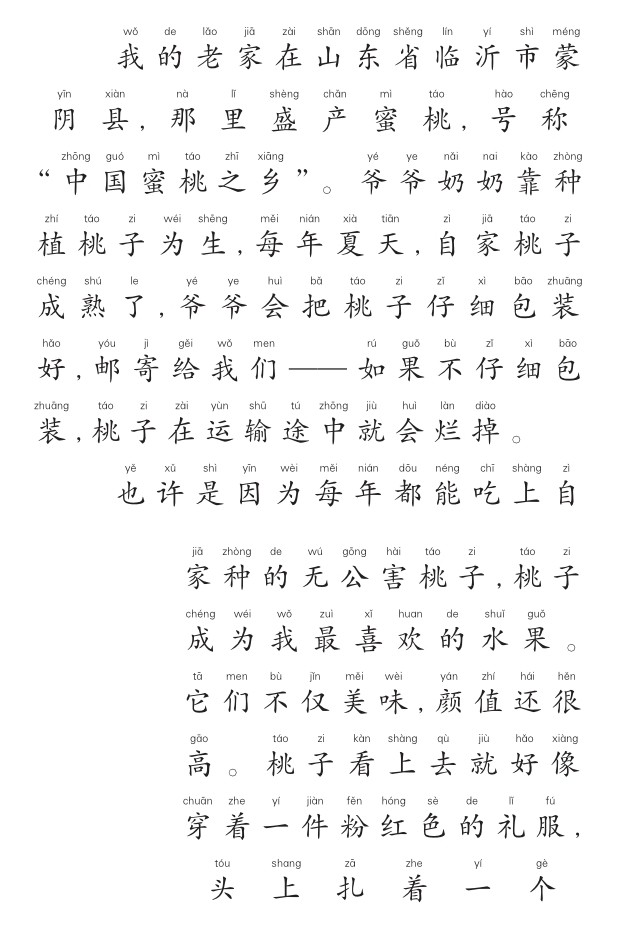 wǒ de lǎo jiā zài shān dōng shěng lín yí shì méng
我的老家在山东省临沂市蒙
yīn xiàn nà lǐ shèng chǎn mì táo hào chēng
阴县,那里盛产蜜桃,号称
zhōng guó mì táo zhī xiāng yé ye nǎi nai kào zhòng
“中国蜜桃之乡”。爷爷奶奶靠种
zhí táo zi wéi shēng měi nián xià tiān zì jiā táo zi
植桃子为生,每年夏天,自家桃子
chéng shú le yé ye huì bǎ táo zi zǐ xì bāo zhuāng
成熟了,爷爷会把桃子仔细包装
hǎo yóu jì gěi wǒ men rú guǒ bù zǐ xì bāo
好,邮寄给我们——如果不仔细包
zhuāng táo zi zài yùn shū tú zhōng jiù huì làn diào
装,桃子在运输途中就会烂掉。
yě xǔ shì yīn wèi měi nián dōu néng chī shàng zì
也许是因为每年都能吃上自
jiā zhòng de wú gōng hài táo zi táo zi
家种的无公害桃子,桃子
chéng wéi wǒ zuì xǐ huan de shuǐ guǒ
成为我最喜欢的水果。
tā men bù jǐn měi wèi yán zhí hái hěn
它们不仅美味,颜值还很
gāo táo zi kàn shàng qù jiù hǎo xiàng
高。桃子看上去就好像
chuān zhe yí jiàn fěn hóng sè de lǐ fú
穿着一件粉红色的礼服,
tóu shang zā zhe yí gè
头上扎着一个